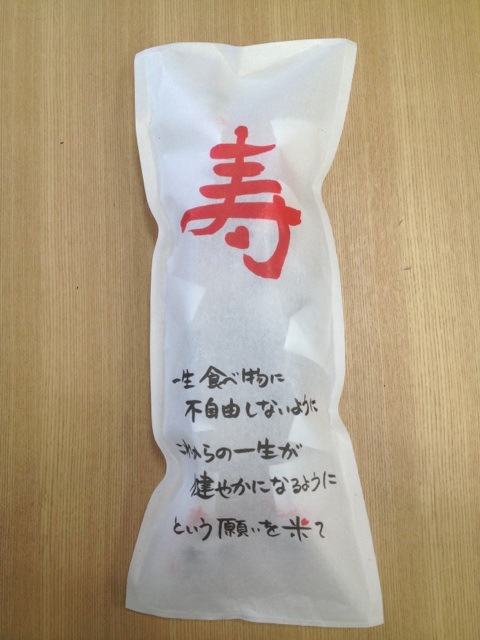 寿
一生食べ物に
不自由しないように
これからの一生が
健やかになるように
という願いを米て